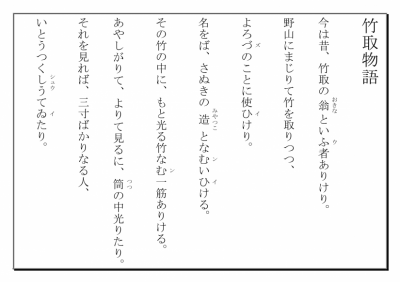 竹取物語
今は昔、竹取の翁おきなといふウ者ありけり。
野山にまじりて竹を取りつつ、
よろづズのことに使ひイけり。
名をば、さぬきの造みやつことなむンいひイける。
その竹の中に、もと光る竹なむン一筋ありける。
あやしがりて、よりて見るに、筒つつの中光りたり。
それを見れば、三寸ばかりなる人、
いとうつくしうシュウてゐイたり。